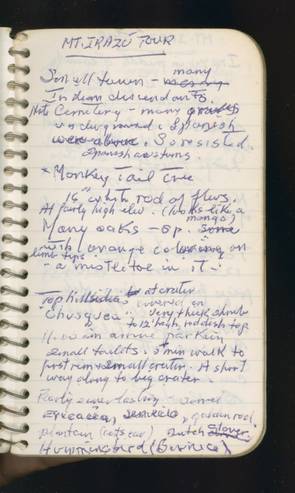 MT. IRAZÚ TOUR
Small town - many
Indian descendants.
Note Cemetery - many graves
underground & Spanish
were above. So resisted.
Spanish customs
* Monkey Tail tree
16" white rod of flwrs.
At fairly high elev. (looks like a
mango)
Many oaks - sp. some
with orange coloring on
limb tips
- a mistletoe in it.
Top hillsides at crater
covered in
"Chusquea". Very thick shrub
to 12' high, reddish top
parking
small toilets. 5 min walk to
first rim & small crater. A short
way along to big crater.
Pearly everlasting -
ericacea, senecio, goldenrod,
plantain (cats ear) Dutch clover
Hummingbird